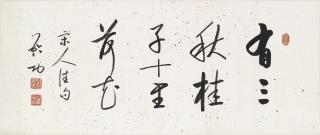 有三
秋桂
子十里
荷花
宋人佳句
启功